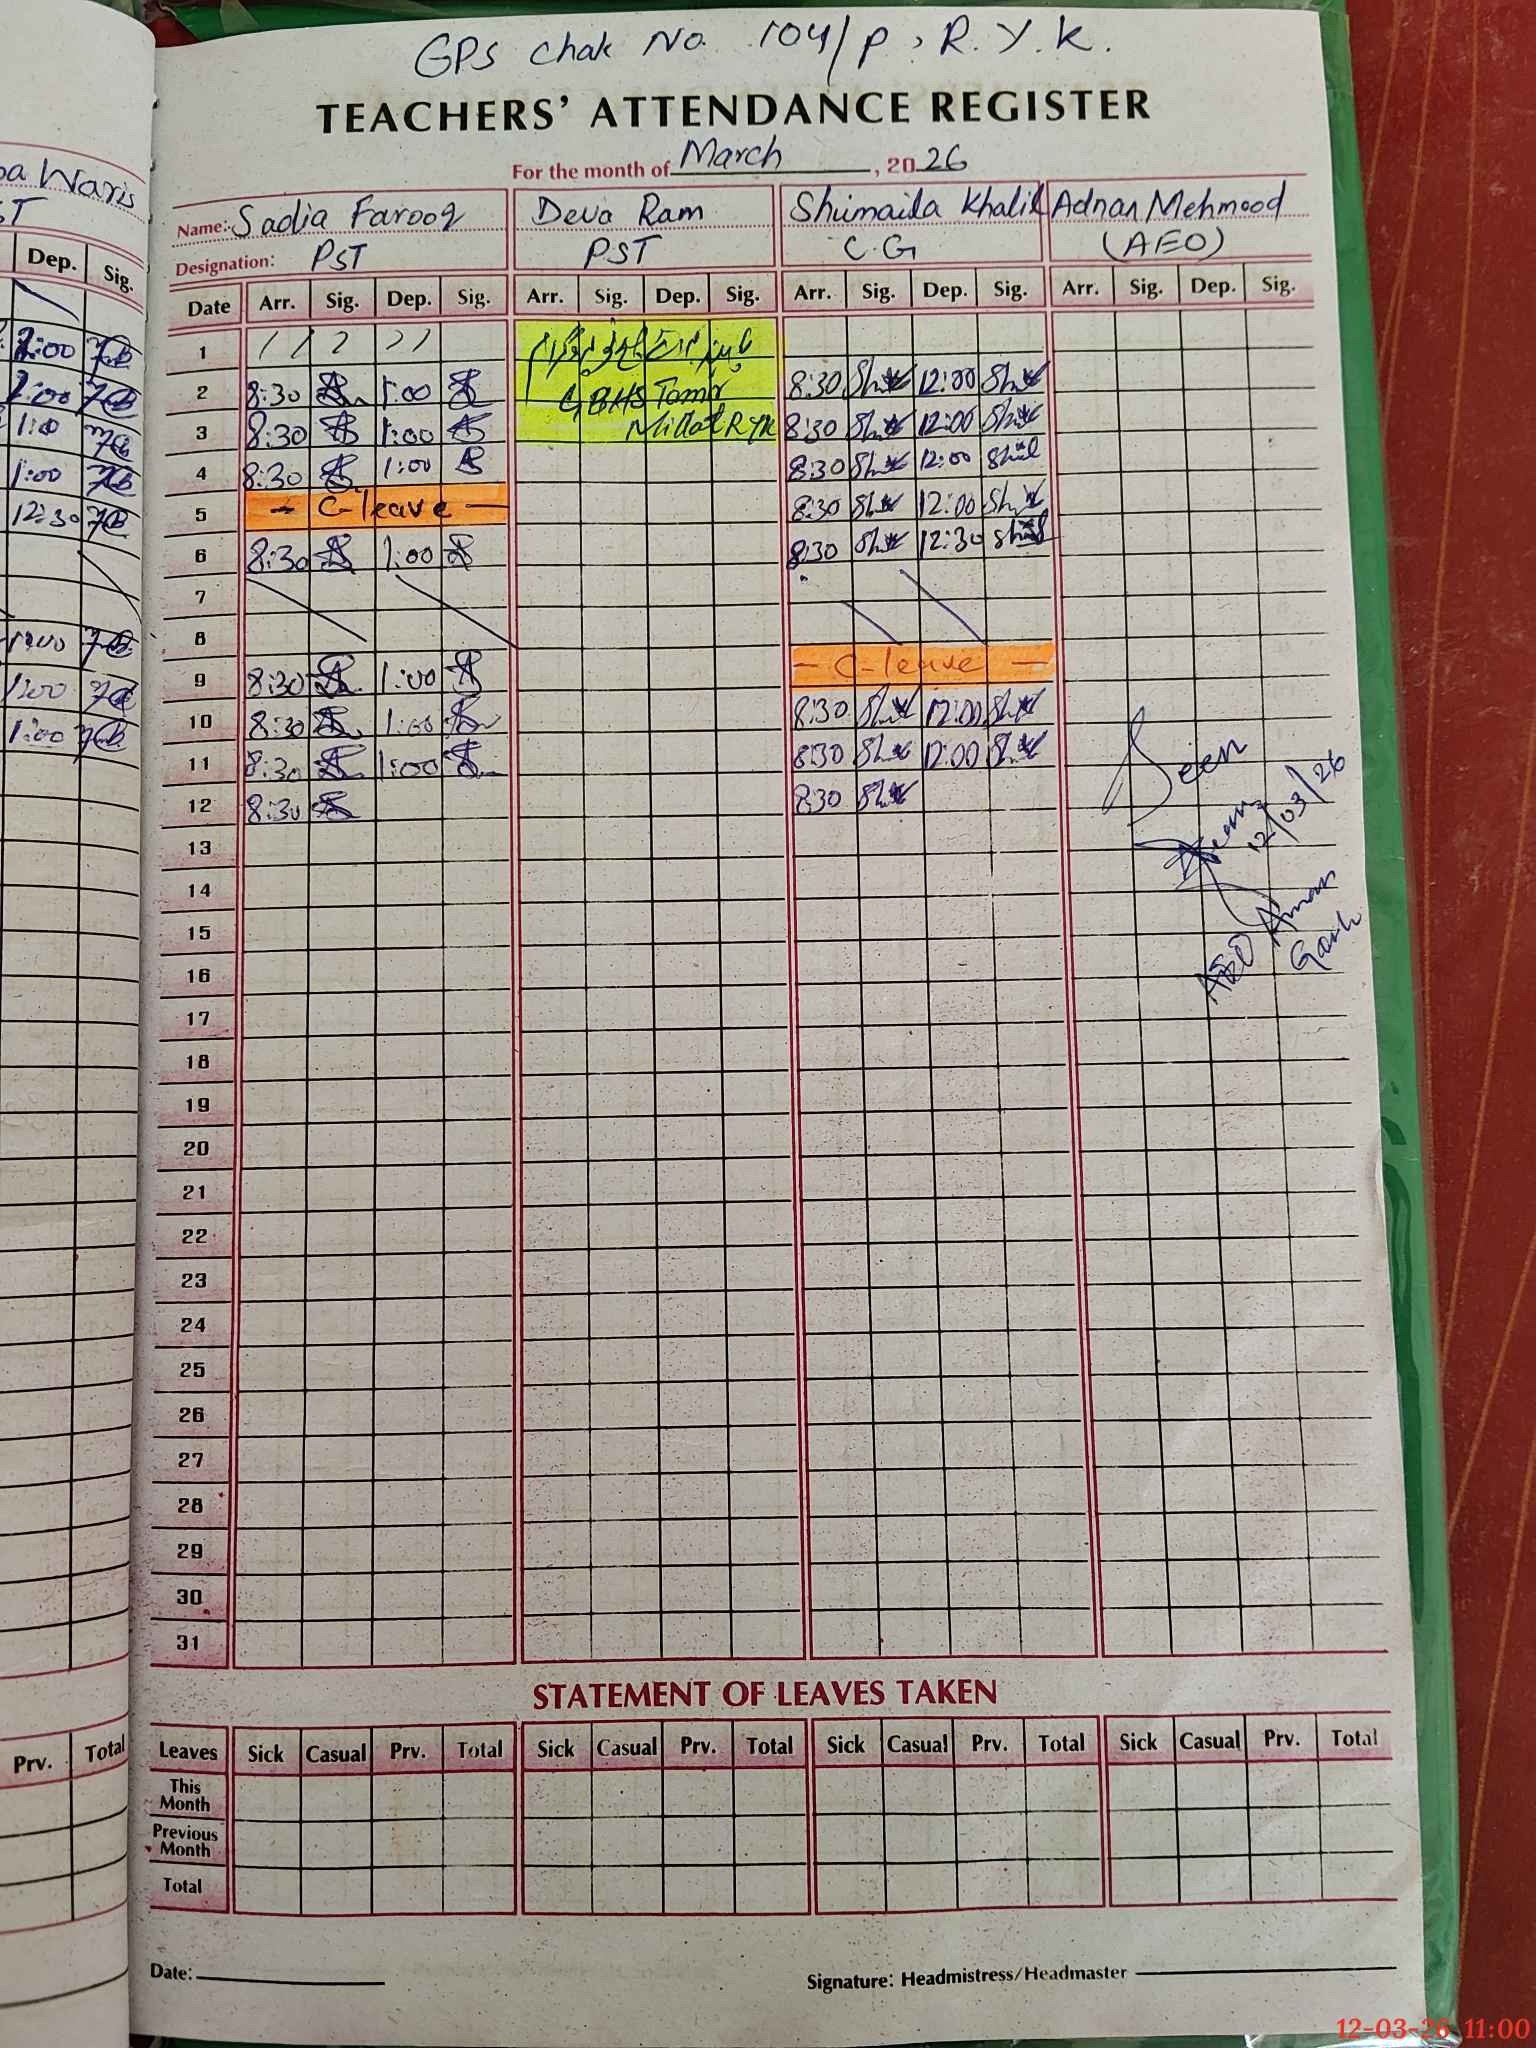 GPS Chak No. 104/P, R.Y.K.
TEACHERS' ATTENDANCE REGISTER
For the month of March, 2026
Waris
Name: Sadia Farooq Deva Ram Shumaila Khalil Adnan Mehmood
Designation: PST PST C.G (AEO)
Dep. Sig.
Date Arr. Sig. Dep. Sig. Arr. Sig. Dep. Sig. Arr. Sig. Dep. Sig. Arr. Sig. Dep. Sig.
1
2:00 2 8:30 1:00 GBHS Tamir 8:30 12:00
2:00 3 8:30 1:00 Millat RYK 8:30 12:00
1:00 4 8:30 1:00 8:30 12:00
1:00 5 - C-leave - 8:30 12:00
12:30 6 8:30 1:00 8:30 12:30
7
8
1:00 9 8:30 1:00 - C-leave -
1:00 10 8:30 1:00 8:30 12:00
1:00 11 8:30 1:00 8:30 12:00 Seen
12 8:30 8:30
12/03/26
13
14
AEO Aman
Garh
15
16
17
18
19
20
21
22
23
24
25
26
27
28
29
30
31
STATEMENT OF LEAVES TAKEN
Prv. Total
Leaves Sick Casual Prv. Total Sick Casual Prv. Total Sick Casual Prv. Total Sick Casual Prv. Total
This
Month
Previous
Month
Total
Date: Signature: Headmistress/Headmaster
12-03-26 11:00